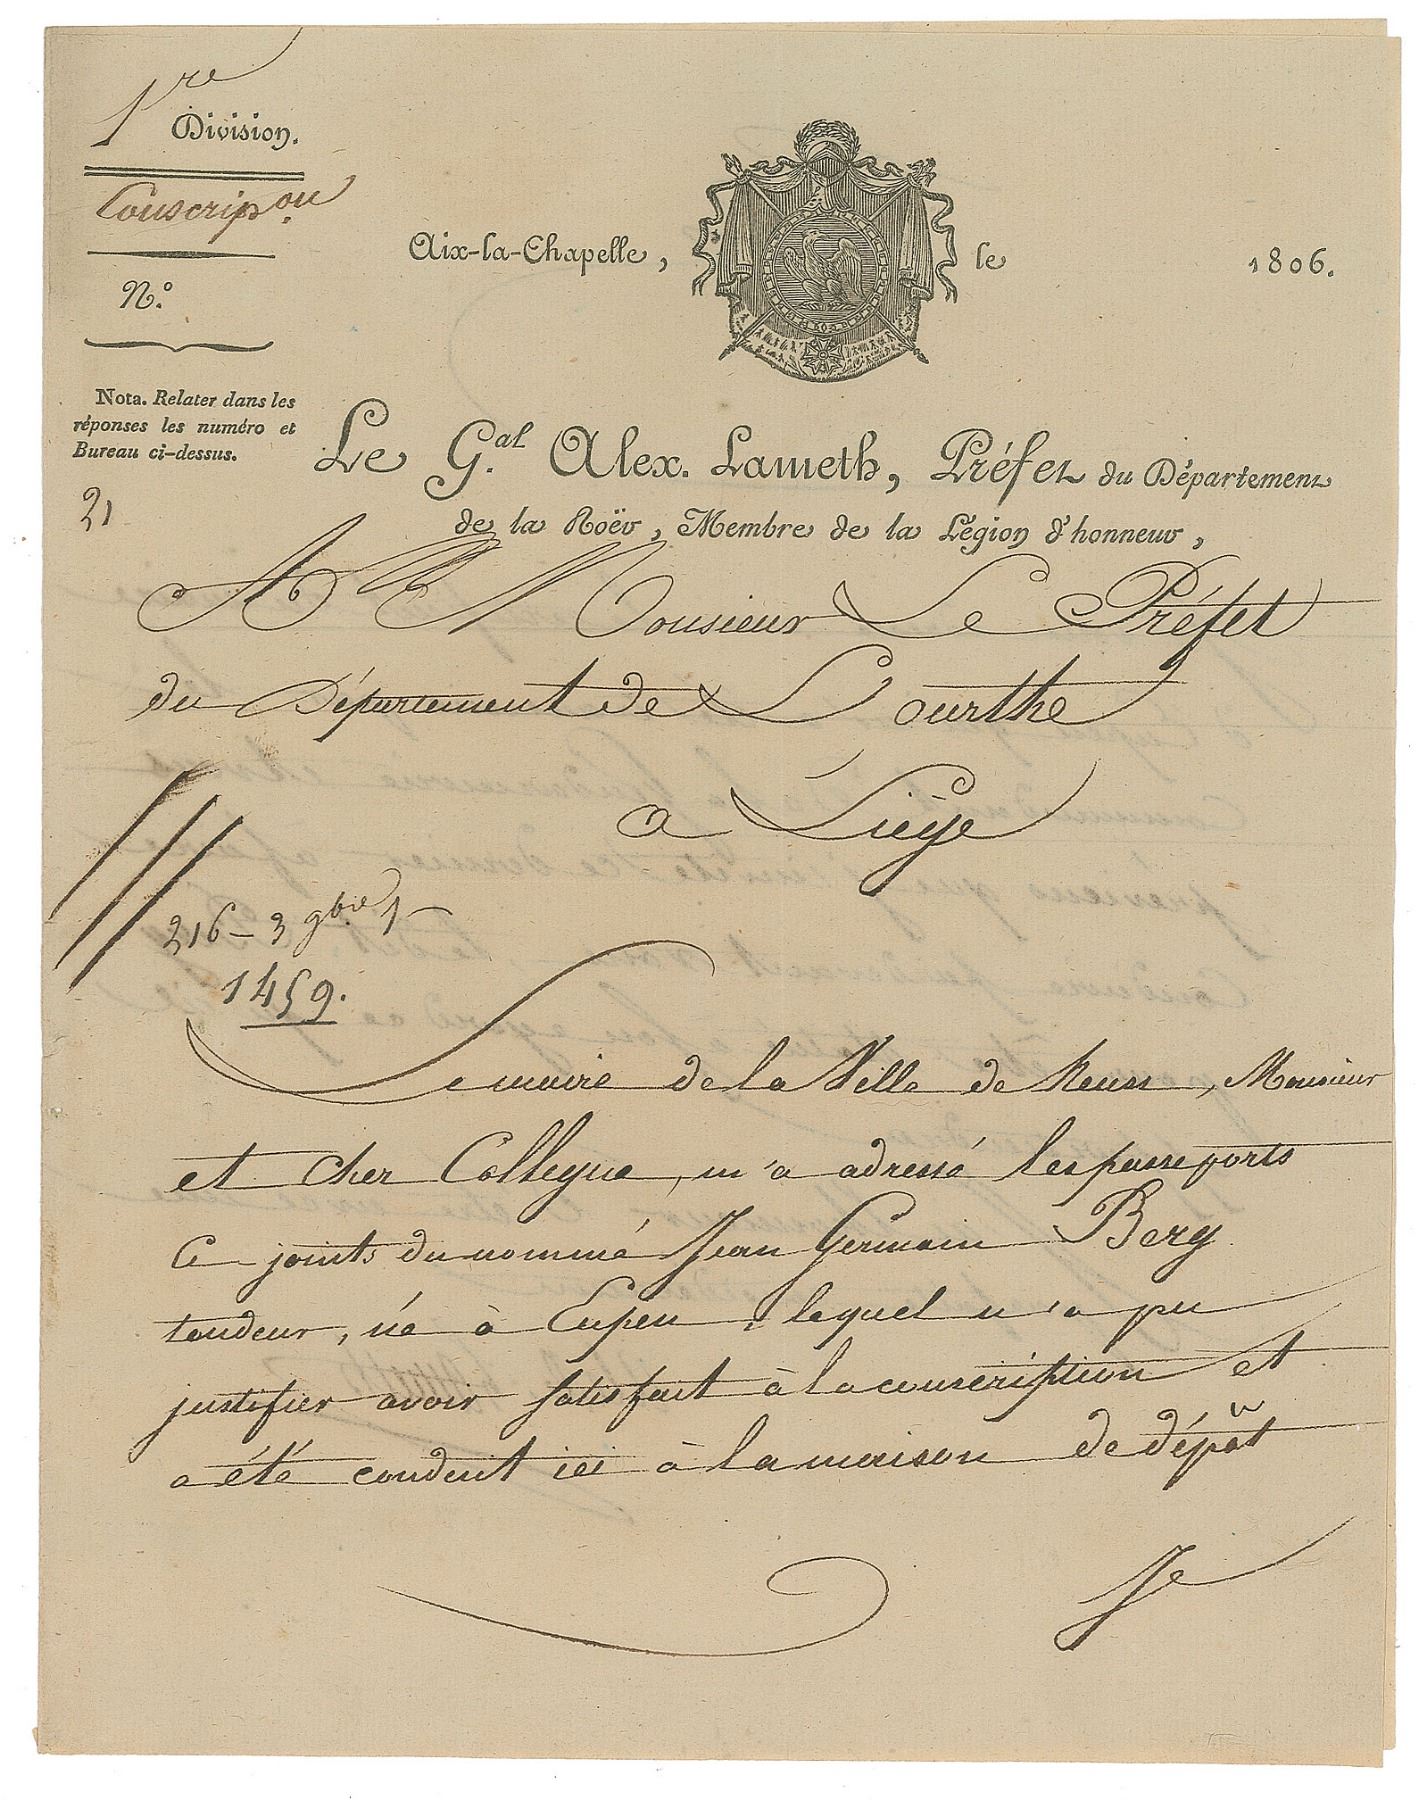 1re
Division.
Conscripon.
N.o
Nota. Relater dans les
réponses les numéro et
Bureau ci-dessus.
21
Aix-la-Chapelle, le 1806.
Le G.al Alex. Lameth, Préfet du Département
de la Roër, Membre de la Légion d'honneur,
A Monsieur Le Préfet
du Département de L'ourthe
a Liége
216 – 3 gbre
1459.
Le maire de la Ville de Neuss, Monsieur
et cher Collegue, m'a adressé les passeports
ci joints du nommé Jean Germain Berg
tondeur, né à Eupen, lequel n'a pu
justifier avoir satisfait à la conscription et
a été conduit ici à la maison de dépôt
Je